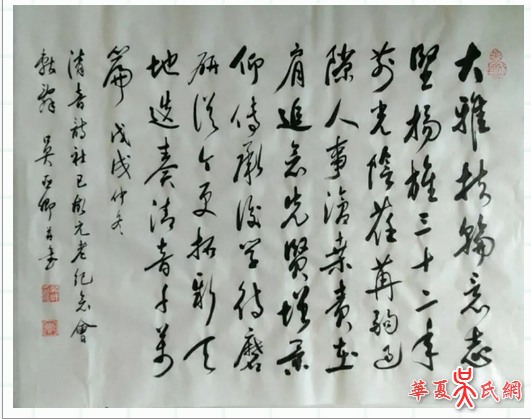 大雅扶輪意志
堅揚旌三十二年
前光陰荏苒駒過
隙人事滄桑責在
肩追念先賢增景
仰傳承後學待磨
研從今更拓新天
地迭奏清音千萬
篇 戊戌仲冬
清音詩社已故元老紀念會
吳亞卿并書
華夏吳氏網